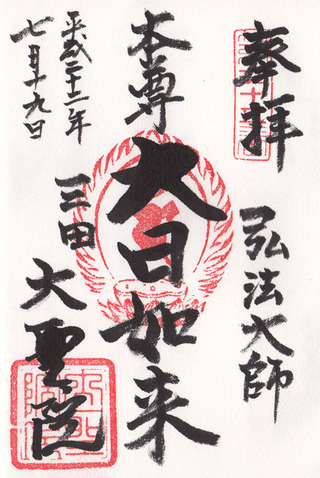 奉拝
弘法大師
本尊
大日如来
平成二十二年
七月十九日
三田
大聖院